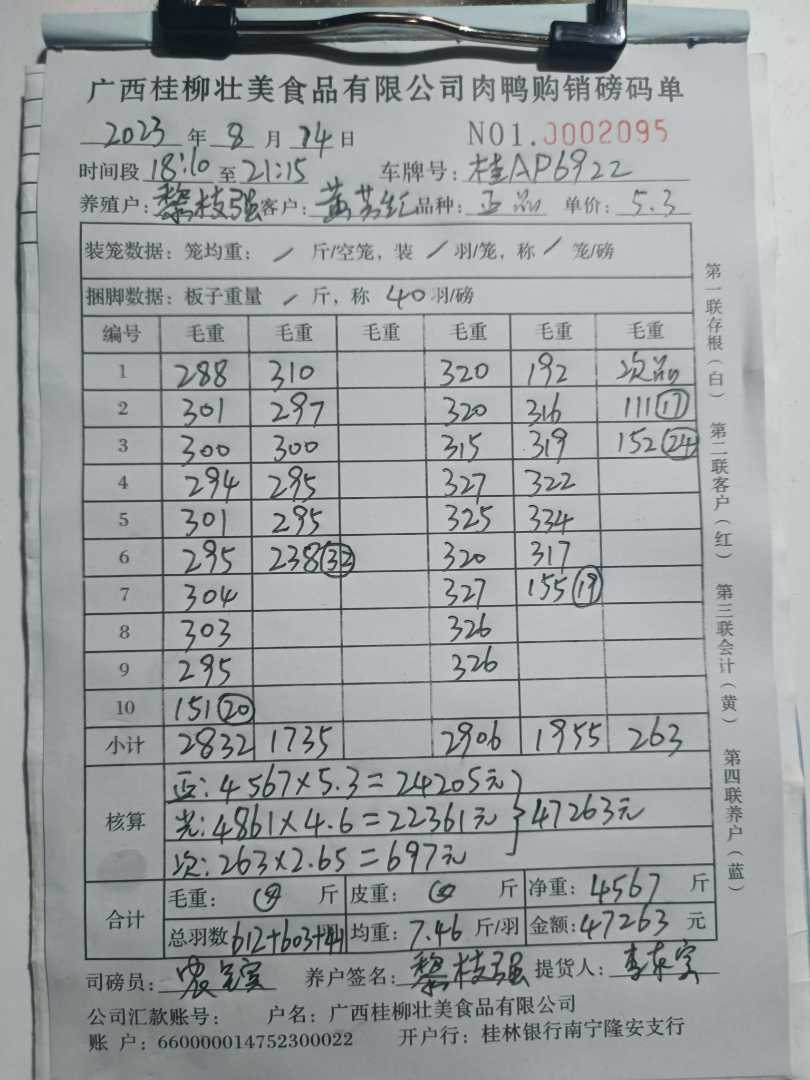 广西桂柳壮美食品有限公司肉鸭购销磅码单
2023 年 8 月 14 日 NO1.J002095
时间段 18:10 至 21:15 车牌号: 桂AP6922
养殖户: 黎枝强 客户: 黄 品种: 正品 单价: 5.3
装笼数据: 笼均重: / 斤/空笼, 装 / 羽/笼, 称 / 笼/磅
捆脚数据: 板子重量 / 斤, 称 40 羽/磅
编号 毛重 毛重 毛重 毛重 毛重 毛重
1 288 310 320 192 次品
2 301 297 320 316 111 (17)
3 300 300 315 319 152 (24)
4 294 295 327 322
5 301 295 325 334
6 295 238 (32) 320 317
7 304 327 155 (19)
8 303 326
9 295 326
10 151 (20)
小计 2832 1735 2906 1955 263
核算 正: 4567×5.3=24205元
光: 4861×4.6=22361元 } 47263元
次: 263×2.65=697元
合计 毛重: 斤 皮重: 斤 净重: 4567 斤
总羽数 612+603+41 均重: 7.46 斤/羽 金额: 47263 元
司磅员: 农 养户签名: 黎枝强 提货人: 李
公司汇款账号: 户名: 广西桂柳壮美食品有限公司
账 户: 660000014752300022 开户行: 桂林银行南宁隆安支行
第一联存根(白) 第二联客户(红) 第三联会计(黄) 第四联养户(蓝)